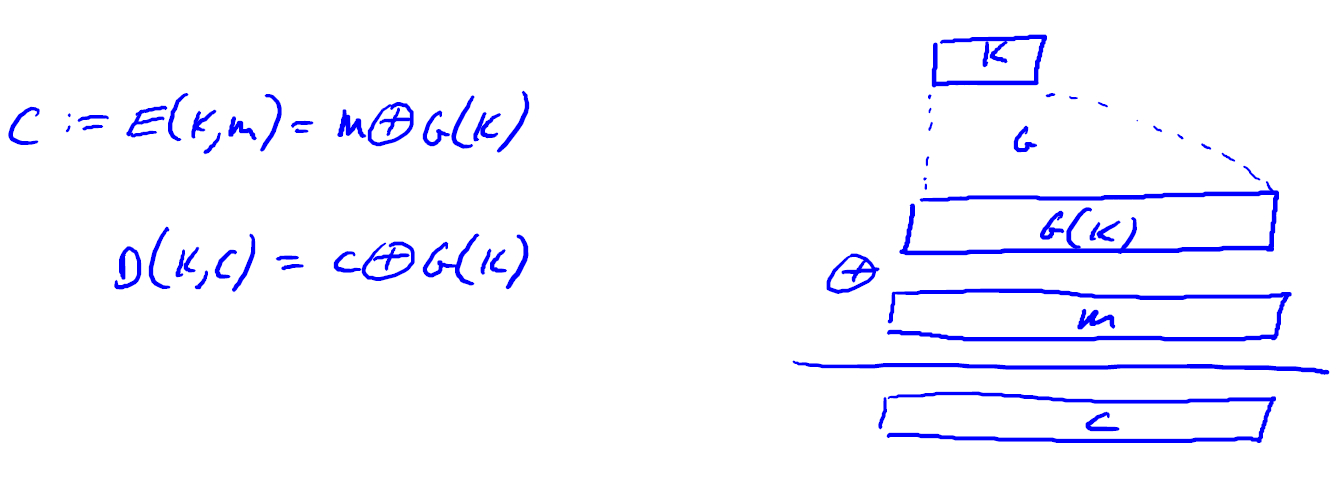 C := E(K,m) = m⊕G(K)
D(K,C) = C⊕G(K)
K
G
G(K)
⊕
m
C